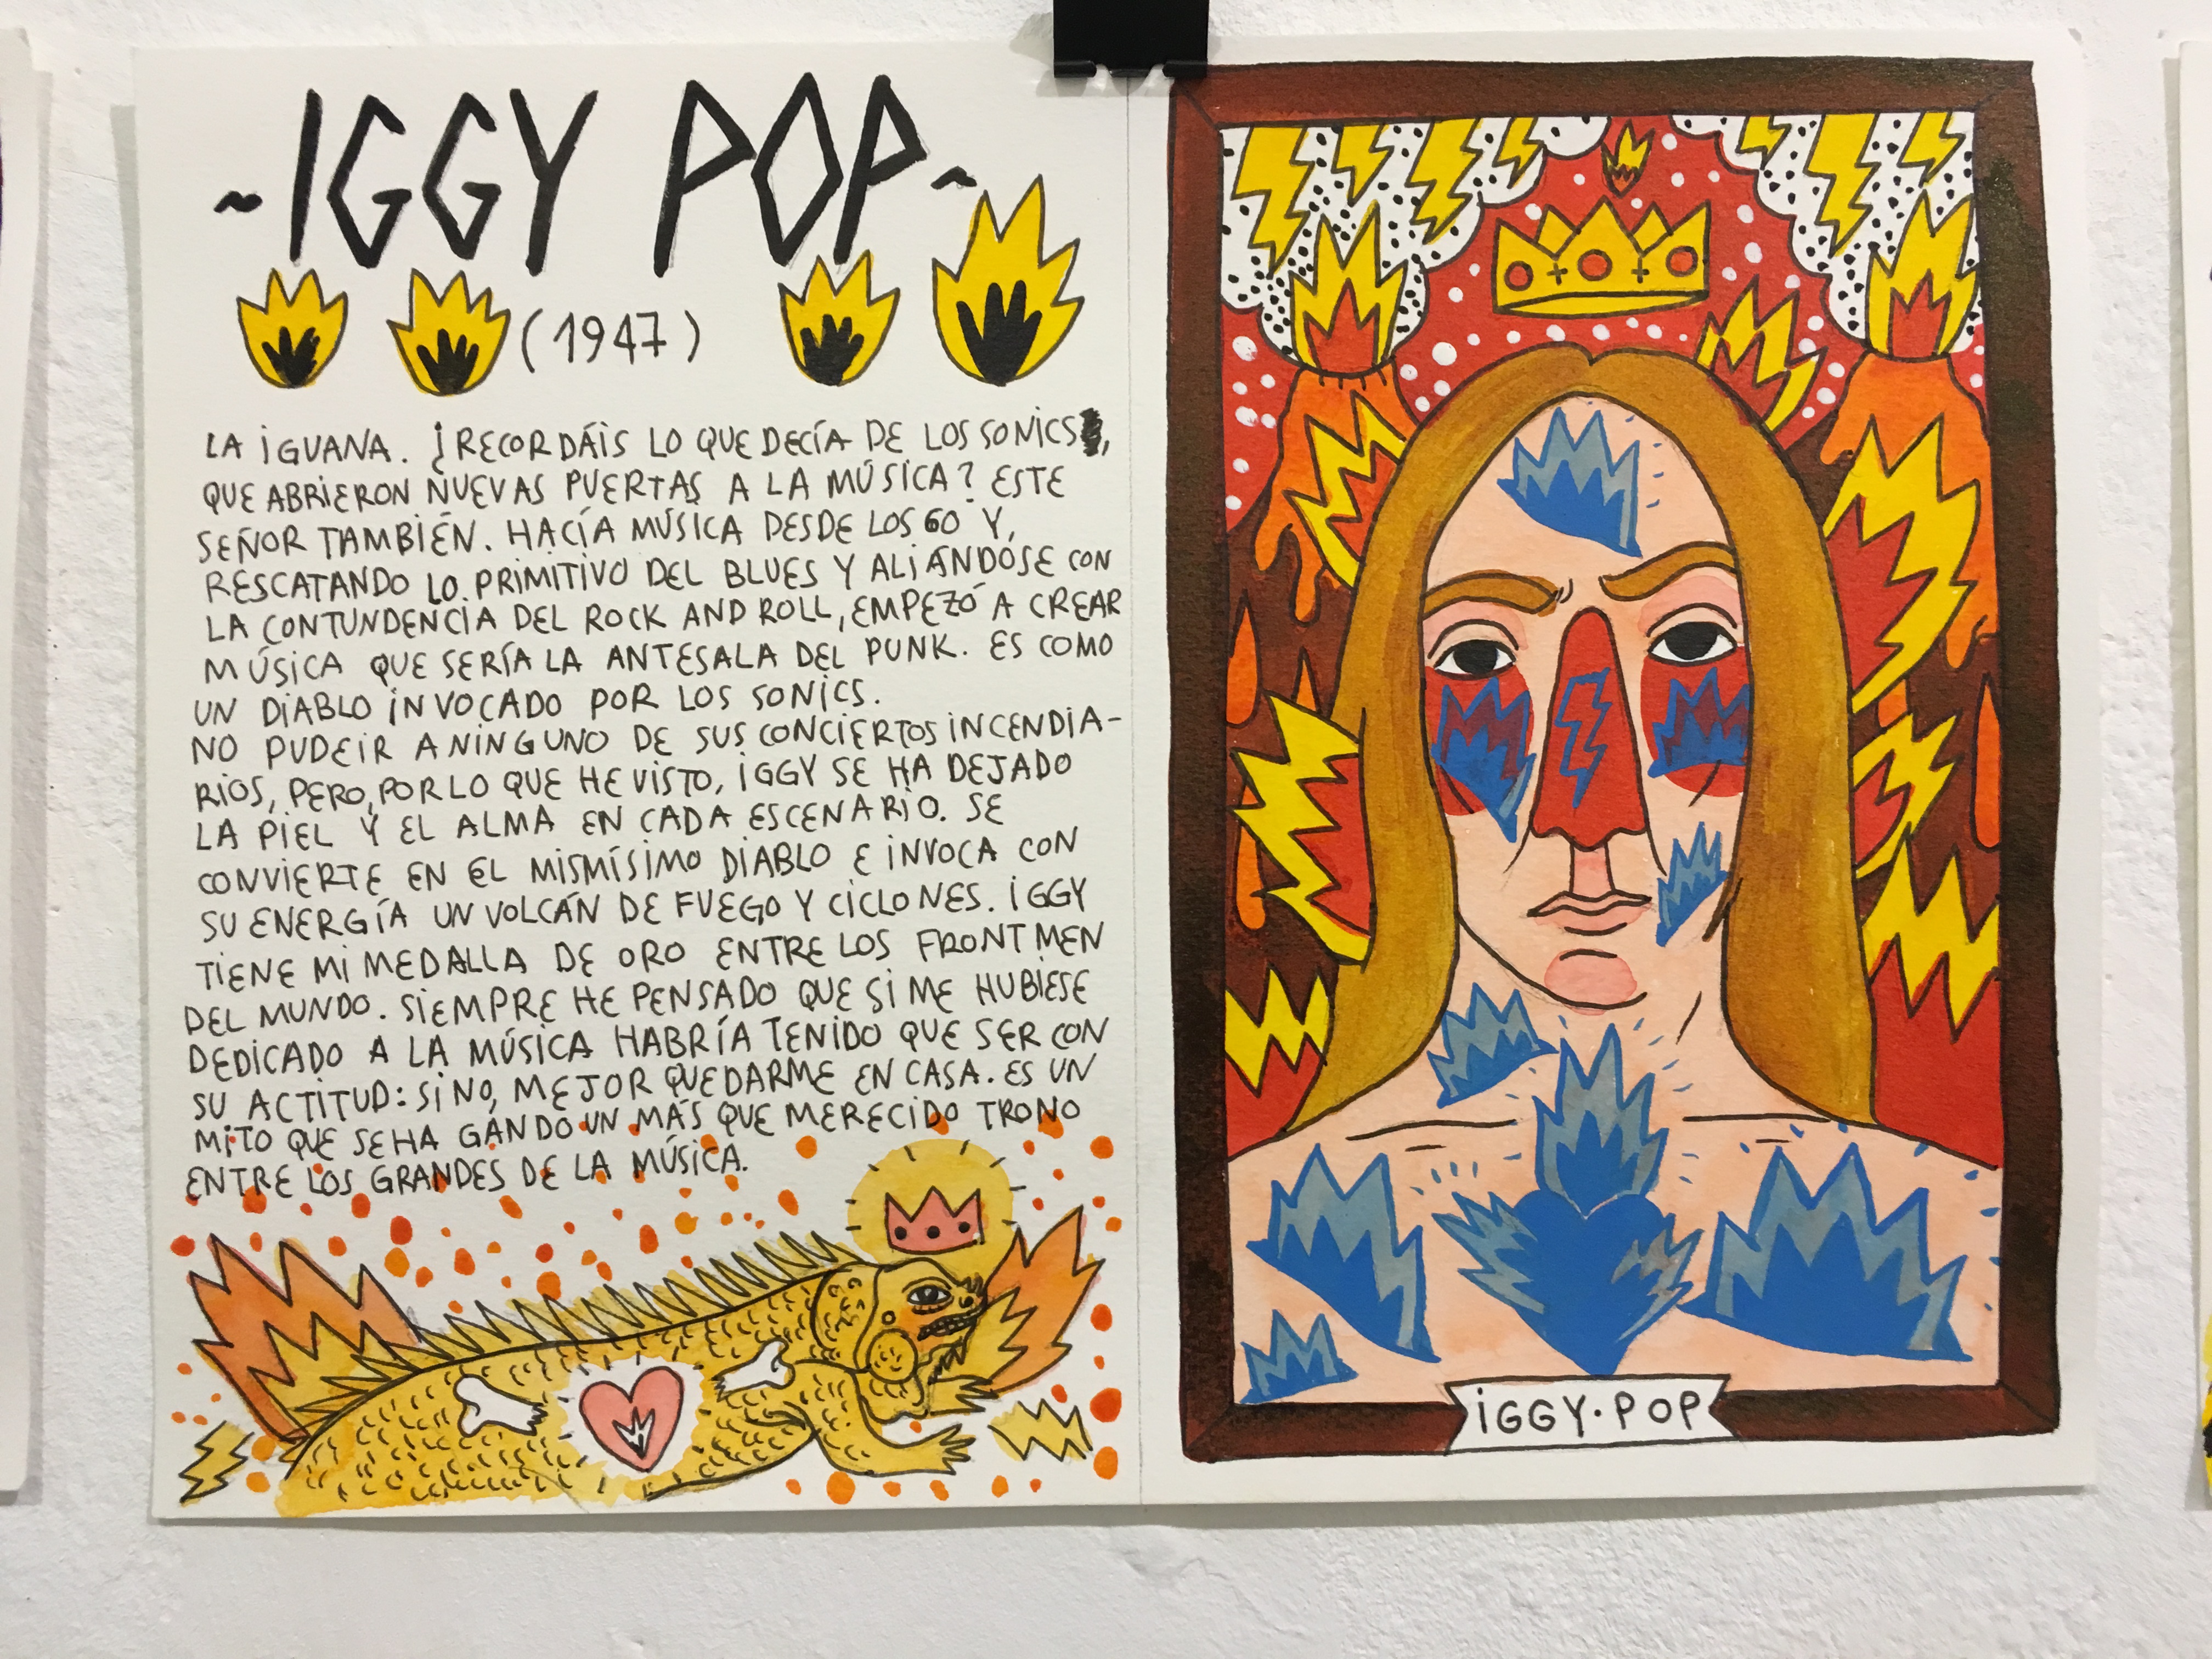 ~IGGY POP~
(1947)
LA IGUANA. ¿RECORDÁIS LO QUE DECÍA DE LOS SONICS,
QUE ABRIERON NUEVAS PUERTAS A LA MÚSICA? ESTE
SEÑOR TAMBIÉN. HACÍA MÚSICA DESDE LOS 60 Y,
RESCATANDO LO PRIMITIVO DEL BLUES Y ALIÁNDOSE CON
LA CONTUNDENCIA DEL ROCK AND ROLL, EMPEZÓ A CREAR
MÚSICA QUE SERÍA LA ANTESALA DEL PUNK. ES COMO
UN DIABLO INVOCADO POR LOS SONICS.
NO PUDE IR A NINGUNO DE SUS CONCIERTOS INCENDIA-
RIOS, PERO, POR LO QUE HE VISTO, IGGY SE HA DEJADO
LA PIEL Y EL ALMA EN CADA ESCENARIO. SE
CONVIERTE EN EL MISMÍSIMO DIABLO E INVOCA CON
SU ENERGÍA UN VOLCÁN DE FUEGO Y CICLONES. IGGY
TIENE MI MEDALLA DE ORO ENTRE LOS FRONTMEN
DEL MUNDO. SIEMPRE HE PENSADO QUE SI ME HUBIESE
DEDICADO A LA MÚSICA HABRÍA TENIDO QUE SER CON
SU ACTITUD: SI NO, MEJOR QUEDARME EN CASA. ES UN
MITO QUE SE HA GANDO UN MÁS QUE MERECIDO TRONO
ENTRE LOS GRANDES DE LA MÚSICA.
IGGY·POP